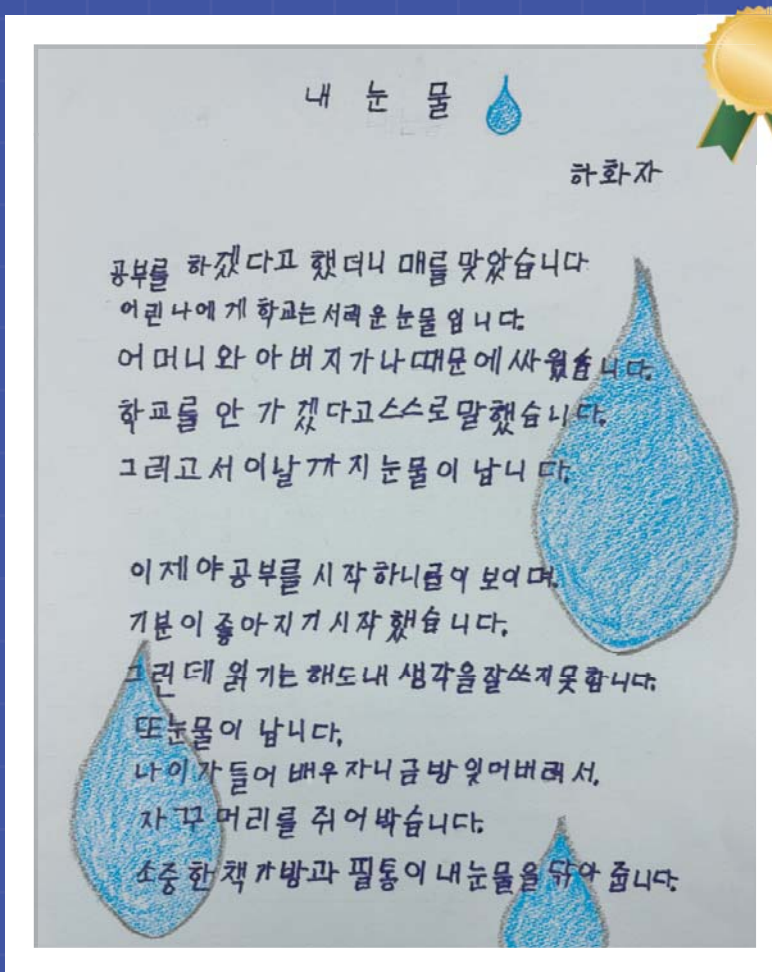 내 눈 물
하화자
공부를 하겠다고 했더니 매를 맞았습니다
어린 나에게 학교는 서러운 눈물 입니다.
어머니와 아버지가 나때문에 싸웠습니다.
학교를 안 가겠다고 스스로 말했습니다.
그리고서 이날까지 눈물이 납니다.
이제야 공부를 시작하니 글이 보이며,
기분이 좋아지기 시작 했습니다.
그런데 읽기는 해도 내 생각을 잘 쓰지 못합니다.
또 눈물이 납니다.
나이가 들어 배우자니 금방 잊어버려서,
자꾸 머리를 쥐어박습니다.
소중한 책가방과 필통이 내 눈물을 닦아 줍니다.